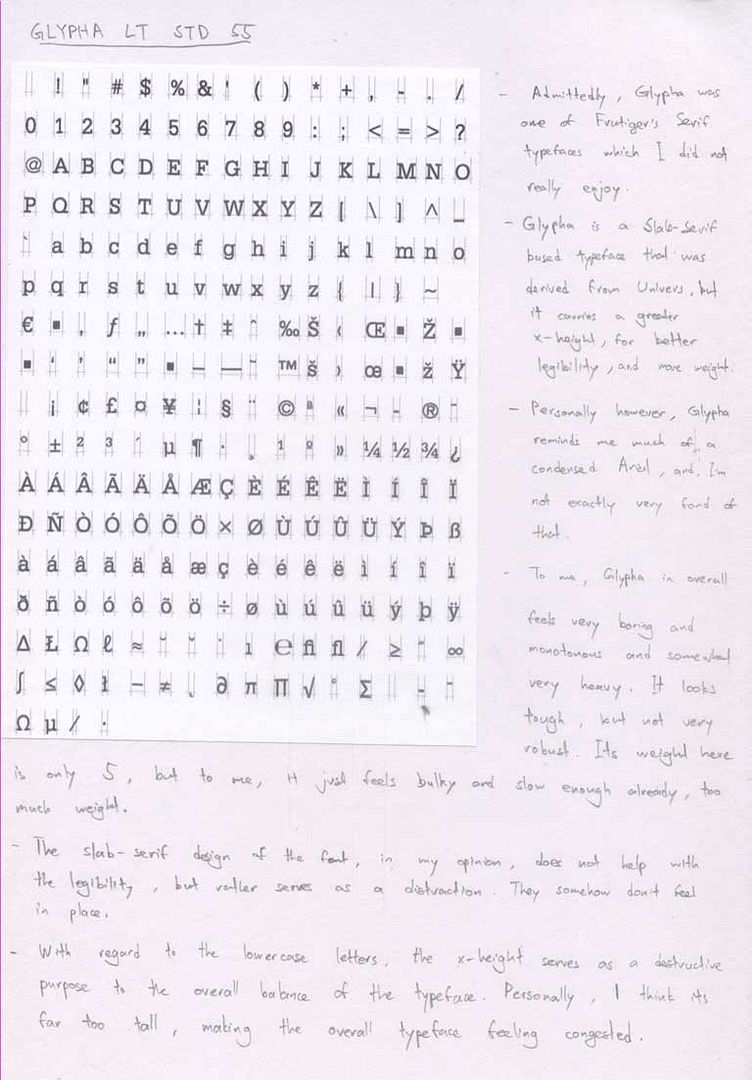 GLYPHA LT STD 55
! " # $ % & ' ( ) * + , - . /
0 1 2 3 4 5 6 7 8 9 : ; < = > ?
@ A B C D E F G H I J K L M N O
P Q R S T U V W X Y Z [ \ ] ^ _
` a b c d e f g h i j k l m n o
p q r s t u v w x y z { | } ~
€ ▪ ‚ ƒ „ … † ‡ ˆ ‰ Š ‹ Œ ▪ Ž ▪
▪ ‘ ’ “ ” ▪ – — ˜ ™ š › œ ▪ ž Ÿ
¡ ¢ £ ¤ ¥ ¦ § ¨ © ª « ¬ - ® ¯
° ± ² ³ ´ µ ¶ · ¸ ¹ º » ¼ ½ ¾ ¿
À Á Â Ã Ä Å Æ Ç È É Ê Ë Ì Í Î Ï
Ð Ñ Ò Ó Ô Õ Ö × Ø Ù Ú Û Ü Ý Þ ß
à á â ã ä å æ ç è é ê ë ì í î ï
ð ñ ò ó ô õ ö ÷ ø ù ú û ü ý þ ÿ
Δ Ł Ω ℓ ≈ ˘ ˇ ˙ ı ℮ ﬁ ﬂ ⁄ ≥ ˝ ∞
∫ ≤ ◊ ł − ≠ ˛ ∂ π ∏ √ ˚ ∑ - ¯
Ω µ ⁄ ·
- Admittedly, Glypha was
one of Frutiger's Serif
typefaces which I did not
really enjoy.
- Glypha is a Slab-Serif
based typeface that was
derived from Univers, but
it carries a greater
x-height, for better
legibility, and more weight.
- Personally however, Glypha
reminds me much of a
condensed Ariel, and I'm
not exactly very fond of
that.
- To me, Glypha in overall
feels very boring and
monotonous and somewhat
very heavy. It looks
tough, but not very
robust. Its weight here
is only 5, but to me, it just feels bulky and slow enough already, too
much weight.
- The slab-serif design of the font, in my opinion, does not help with
the legibility, but rather serves as a distraction. They somehow don't feel
in place.
- With regard to the lowercase letters, the x-height serves as a destructive
purpose to the overall balance of the typeface. Personally, I think its
far too tall, making the overall typeface feeling congested.